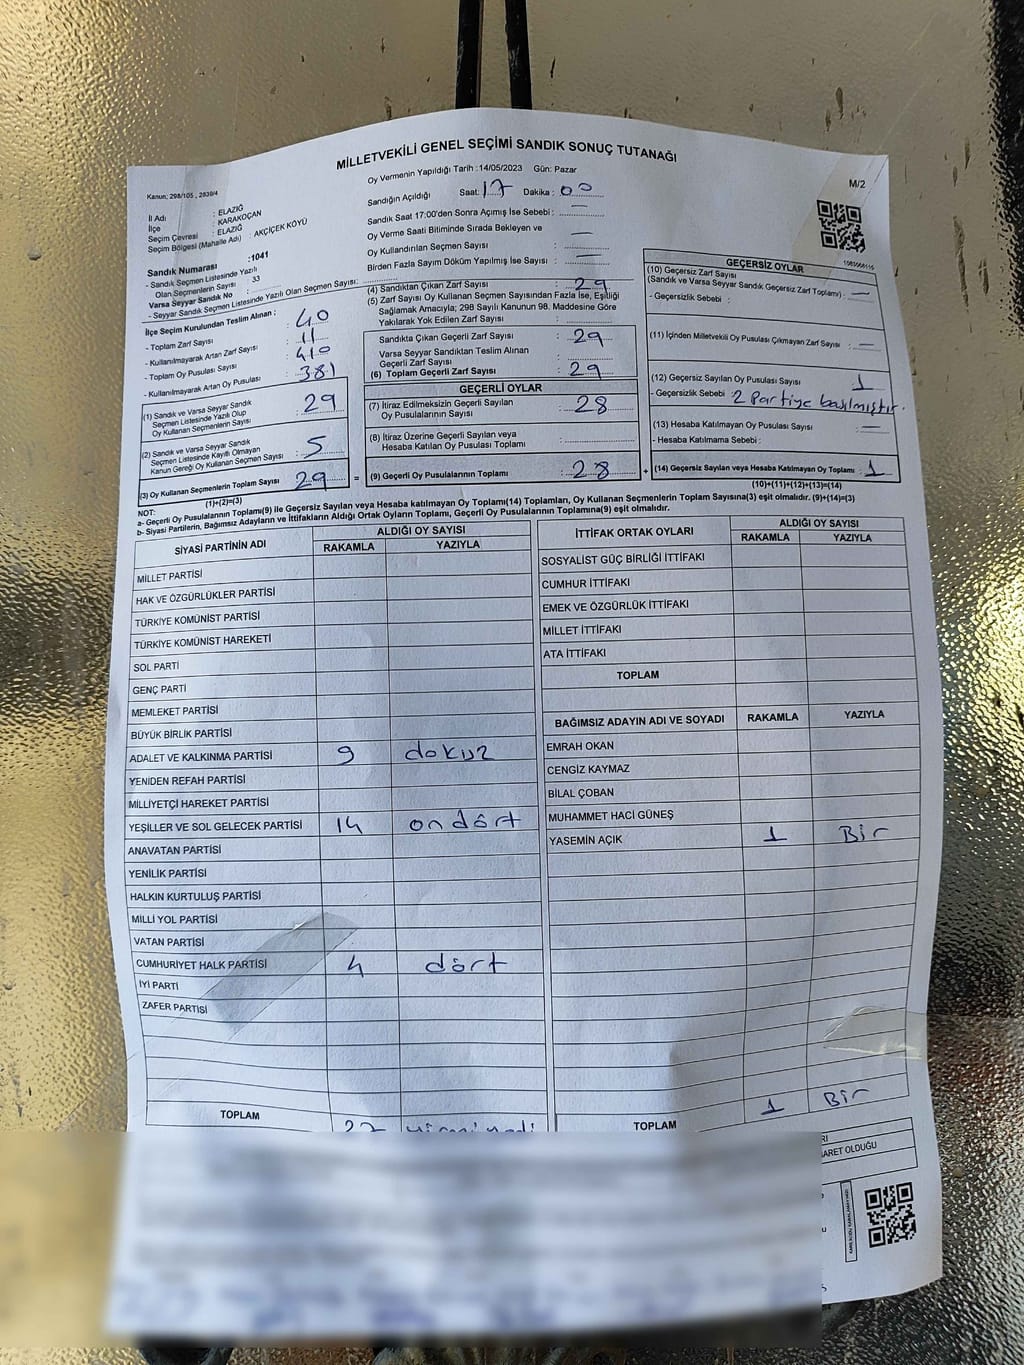 MİLLETVEKİLİ GENEL SEÇİMİ SANDIK SONUÇ TUTANAĞI
Oy Vermenin Yapıldığı Tarih : 14/05/2023 Gün: Pazar
Kanun; 298/105 , 2839/4
M/2
İl Adı : ELAZIĞ
İlçe : KARAKOÇAN
Seçim Çevresi : ELAZIĞ
Seçim Bölgesi (Mahalle Adı) : AKÇİÇEK KÖYÜ
Sandık Numarası :1041
- Sandık Seçmen Listesinde Yazılı
Olan Seçmenlerin Sayısı : 33
Varsa Seyyar Sandık No :
- Seyyar Sandık Seçmen Listesinde Yazılı Olan Seçmen Sayısı:
İlçe Seçim Kurulundan Teslim Alınan ;
- Toplam Zarf Sayısı : 40
- Kullanılmayarak Artan Zarf Sayısı : 11
- Toplam Oy Pusulası Sayısı : 410
- Kullanılmayarak Artan Oy Pusulası : 381
(1) Sandık ve Varsa Seyyar Sandık
Seçmen Listesinde Yazılı Olup
Oy Kullanan Seçmenlerin Sayısı : 29
(2) Sandık ve Varsa Seyyar Sandık
Seçmen Listesinde Kayıtlı Olmayan
Kanun Gereği Oy Kullanan Seçmen Sayısı : 5
(3) Oy Kullanan Seçmenlerin Toplam Sayısı : 29
(1)+(2)=(3)
Sandığın Açıldığı Saat: 17 Dakika : 00
Sandık Saat 17:00'den Sonra Açımış İse Sebebi : —
Oy Verme Saati Bitiminde Sırada Bekleyen ve
Oy Kullandırılan Seçmen Sayısı : —
Birden Fazla Sayım Döküm Yapılmış İse Sayısı : —
(4) Sandıktan Çıkan Zarf Sayısı : 29
(5) Zarf Sayısı Oy Kullanan Seçmen Sayısından Fazla İse, Eşitliği
Sağlamak Amacıyla; 298 Sayılı Kanunun 98. Maddesine Göre
Yakılarak Yok Edilen Zarf Sayısı :
Sandıkta Çıkan Geçerli Zarf Sayısı : 29
Varsa Seyyar Sandıktan Teslim Alınan
Geçerli Zarf Sayısı :
(6) Toplam Geçerli Zarf Sayısı : 29
GEÇERLİ OYLAR
(7) İtiraz Edilmeksizin Geçerli Sayılan
Oy Pusulalarının Sayısı : 28
(8) İtiraz Üzerine Geçerli Sayılan veya
Hesaba Katılan Oy Pusulası Toplamı :
= (9) Geçerli Oy Pusulalarının Toplamı : 28
GEÇERSİZ OYLAR
(10) Geçersiz Zarf Sayısı
(Sandık ve Varsa Seyyar Sandık Geçersiz Zarf Toplamı) : —
- Geçersizlik Sebebi :
(11) İçinden Milletvekili Oy Pusulası Çıkmayan Zarf Sayısı : —
(12) Geçersiz Sayılan Oy Pusulası Sayısı : 1
- Geçersizlik Sebebi : 2 Partiye basılmıştır.
(13) Hesaba Katılmayan Oy Pusulası Sayısı : —
- Hesaba Katılmama Sebebi :
+ (14) Geçersiz Sayılan veya Hesaba Katılmayan Oy Toplamı : 1
(10)+(11)+(12)+(13)=(14)
NOT:
a- Geçerli Oy Pusulalarının Toplamı(9) ile Geçersiz Sayılan veya Hesaba katılmayan Oy Toplamı(14) Toplamları, Oy Kullanan Seçmenlerin Toplam Sayısına(3) eşit olmalıdır. (9)+(14)=(3)
b- Siyasi Partilerin, Bağımsız Adayların ve İttifakların Aldığı Ortak Oyların Toplamı, Geçerli Oy Pusulalarının Toplamına(9) eşit olmalıdır.
SİYASİ PARTİNİN ADI ALDIĞI OY SAYISI
RAKAMLA YAZIYLA
MİLLET PARTİSİ
HAK VE ÖZGÜRLÜKLER PARTİSİ
TÜRKİYE KOMÜNİST PARTİSİ
TÜRKİYE KOMÜNİST HAREKETİ
SOL PARTİ
GENÇ PARTİ
MEMLEKET PARTİSİ
BÜYÜK BİRLİK PARTİSİ
ADALET VE KALKINMA PARTİSİ 9 dokuz
YENİDEN REFAH PARTİSİ
MİLLİYETÇİ HAREKET PARTİSİ
YEŞİLLER VE SOL GELECEK PARTİSİ 14 ondört
ANAVATAN PARTİSİ
YENİLİK PARTİSİ
HALKIN KURTULUŞ PARTİSİ
MİLLİ YOL PARTİSİ
VATAN PARTİSİ
CUMHURİYET HALK PARTİSİ 4 dört
İYİ PARTİ
ZAFER PARTİSİ
TOPLAM 27 yirmiyedi
İTTİFAK ORTAK OYLARI ALDIĞI OY SAYISI
RAKAMLA YAZIYLA
SOSYALİST GÜÇ BİRLİĞİ İTTİFAKI
CUMHUR İTTİFAKI
EMEK VE ÖZGÜRLÜK İTTİFAKI
MİLLET İTTİFAKI
ATA İTTİFAKI
TOPLAM
BAĞIMSIZ ADAYIN ADI VE SOYADI RAKAMLA YAZIYLA
EMRAH OKAN
CENGİZ KAYMAZ
BİLAL ÇOBAN
MUHAMMET HACİ GÜNEŞ
YASEMİN AÇIK 1 Bir
TOPLAM 1 Bir
ARET OLDUĞU